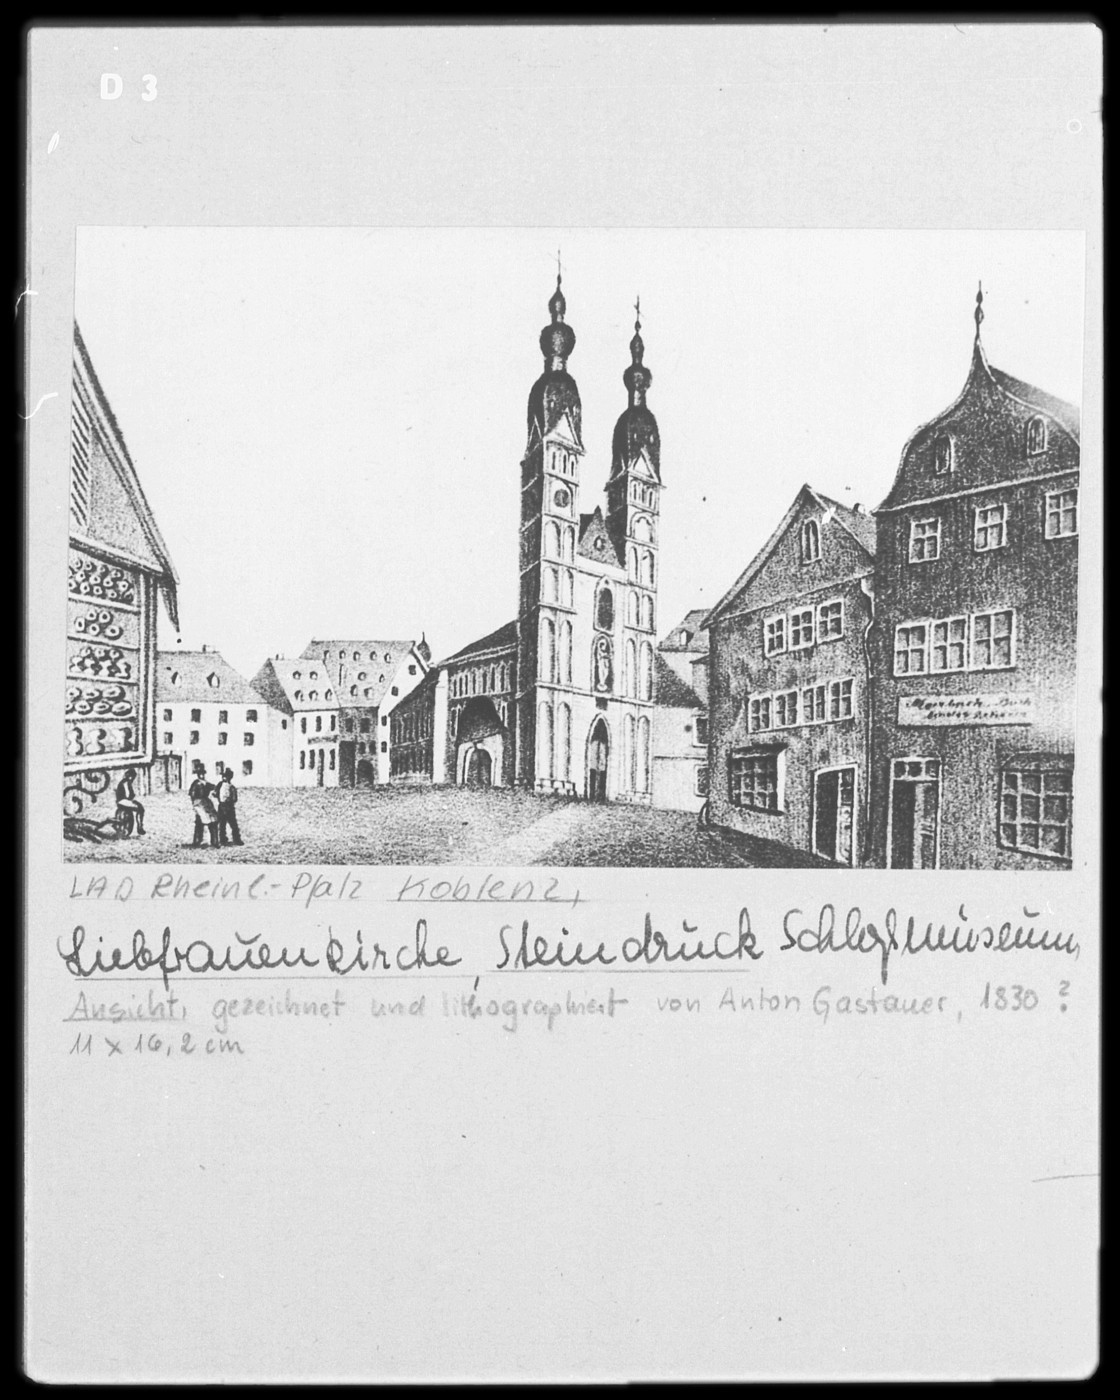 D 3
LAD Rheinl.-Pfalz Koblenz,
Liebfrauenkirche, Steindruck Schloßmuseum,
Ansicht, gezeichnet und lithographiert von Anton Gastauer, 1830 ?
11 x 16,2 cm